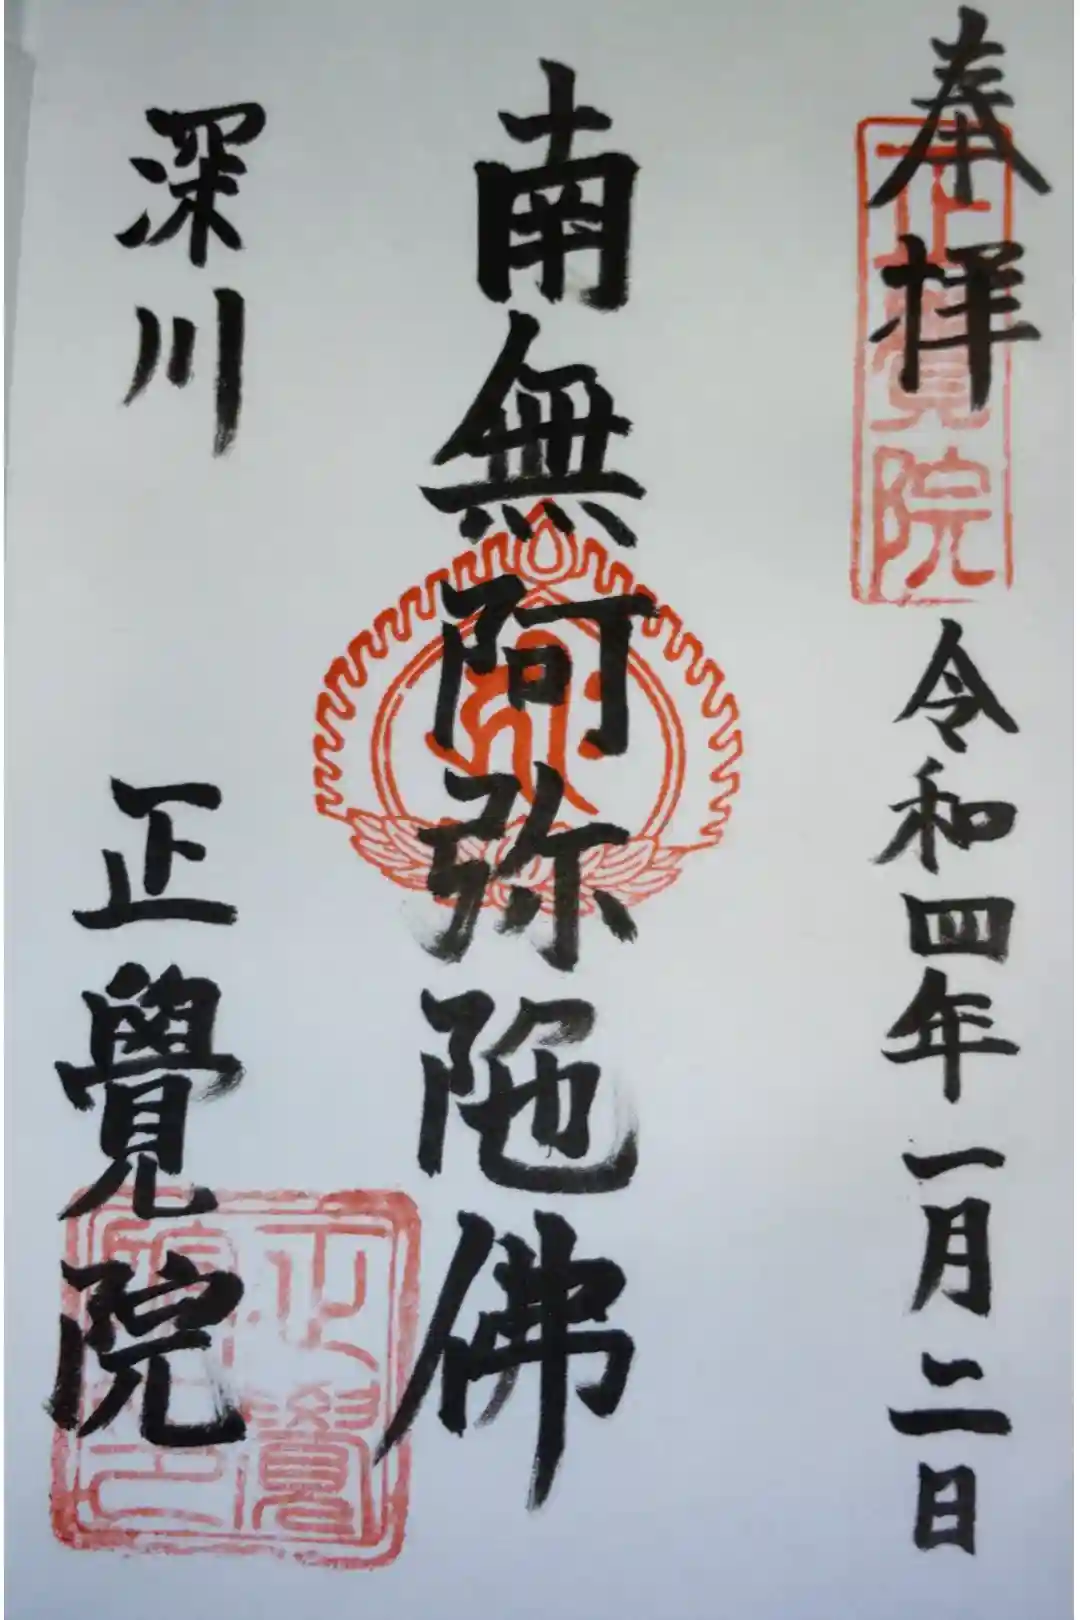 奉拝 令和四年一月二日
正覚院
南無阿弥陀佛
深川 正覺院